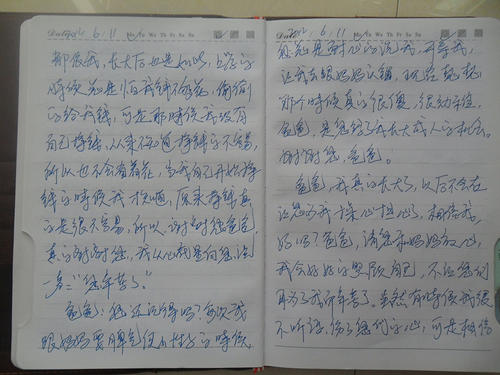 Date 2014. 6. 11 Mo Tu We Th Fr Sa Su
都很我,长大后也是如此,上学的
时候总是怕我钱不够花,偷偷
的给我钱,可是那时候我没有
自己挣钱,从来不知道挣钱的不容易,
所以也不会省着花,当我自己开始挣
钱的时候我才知道,原来挣钱真
的是很不容易,所以,谢谢您爸爸,
真的谢谢您,我从心裡是向您说
一声:"您辛苦了。"
爸爸:您还记得吗?每次我
跟妈妈耍脾气使小性子的时候,
Date 2014. 6. 11 Mo Tu We Th Fr Sa Su
您总是耐心的说我,开导我,
让我去跟妈妈认错,现在想想
那个时候真的很傻,很幼稚,
爸爸,是您给了我长大成人的机会。
谢谢您,爸爸!
爸爸,我真的长大了,以后不会在
让您为我操心担心了,相信我,
好吗?爸爸,请您和妈妈放心,
我会好好的照顾自己,不让您们
再为了我而辛苦了。虽然有时候我很
不听话,伤了您们的心,可是相信